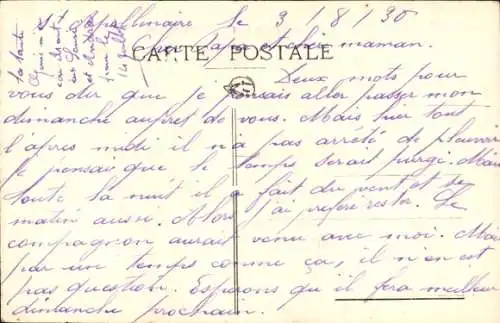 St Apollinaire le 3/8/30
CARTE POSTALE
Cher Papa et chère maman.
Deux mots pour
vous dir que je pensais aller passer mon
dimanche aupret de vous. Mais hier tout
l'après midi il n'a pas arrêté de pleuvoir
je pensais que le temps serait purgé. Mais
toute la nuit il a fait du vent et se
matin aussi. Alors j'ai préféré rester. Le
compagnon aurait venu avec moi. Mais
par un temps comme ça, il n'en est
pas question. Esperons qu'il fera meilleur
dimanche prochain.
la santé